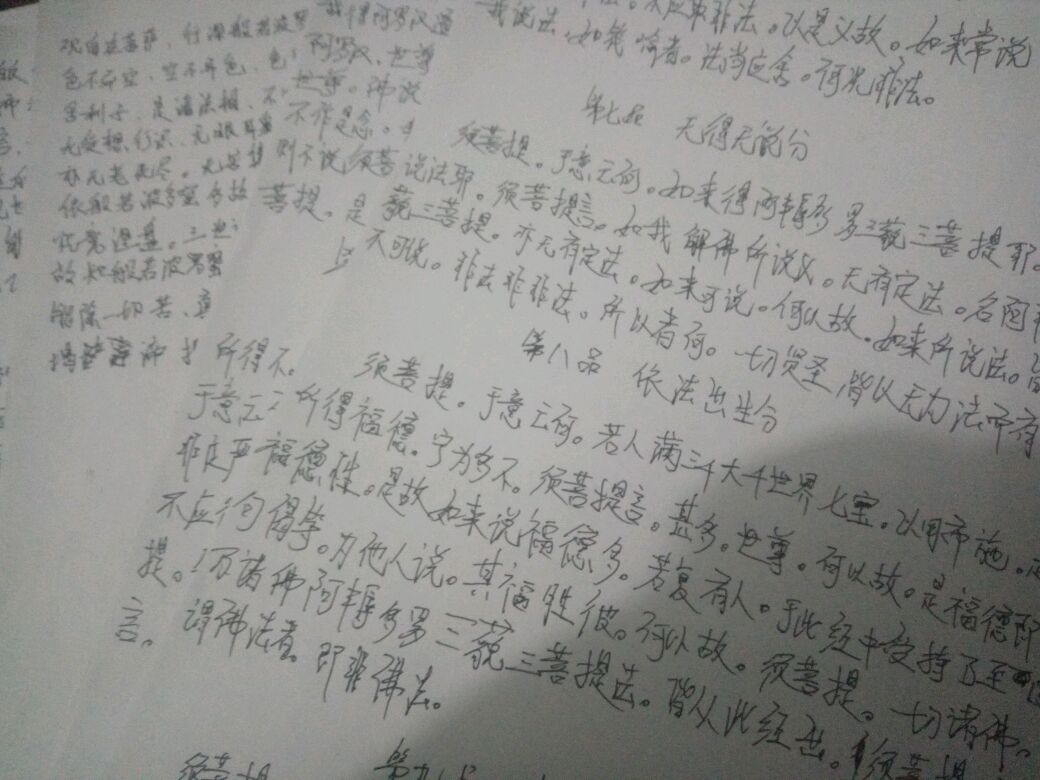 法。不应取非法。以是义故。如来常说
我说法。如筏喻者。法当应舍。何况非法。
第七品 无得无说分
须菩提。于意云何。如来得阿耨多罗三藐三菩提耶。
说法耶。须菩提言。如我解佛所说义。无有定法。名阿耨
藐三菩提。亦无有定法。如来可说。何以故。如来所说法。皆
不可说。非法非非法。所以者何。一切贤圣。皆以无为法而有
第八品 依法出生分
须菩提。于意云何。若人满三千大千世界七宝。以用布施。
所得福德。宁为多不。须菩提言。甚多。世尊。何以故。是福德即
非福德性。是故如来说福德多。若复有人。于此经中受持乃至
为他人说。其福胜彼。何以故。须菩提。一切诸佛。
诸佛阿耨多罗三藐三菩提法。皆从此经出。须菩提
谓佛法者。即非佛法。
须菩提
第九
观自在菩萨。行深般若波罗
色不异空。空不异色。色
舍利子。是诸法相。不
无受想行识。无眼耳鼻
亦无老死尽。无苦集
依般若波罗蜜多故
究竟涅盘。三世
故知般若波罗蜜
解除一切苦。真
揭谛
我得阿罗汉道
阿罗汉。世尊
世尊。佛说
不作是念。
则不说须菩
菩提。是
所得不。
于意云
庄严
不应
提。
言。